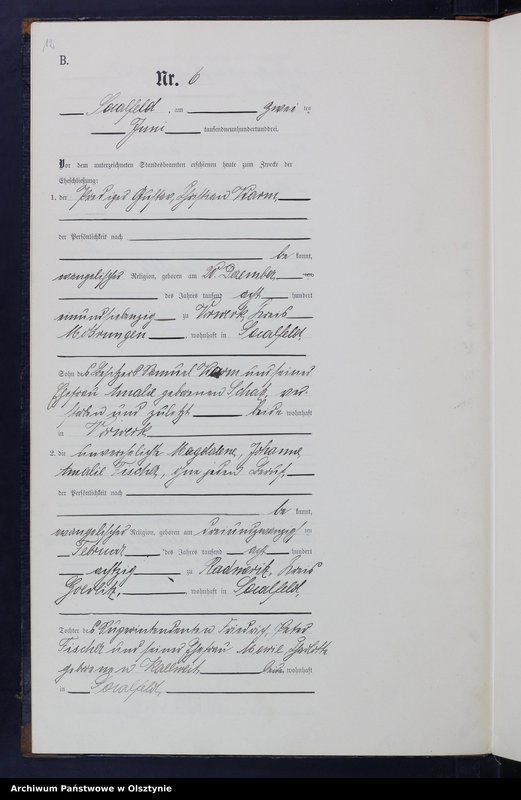 B.
Nr. 6
Saalfeld, am zwei ten
Juni tausendneunhundertunddrei.
Vor dem unterzeichneten Standesbeamten erschienen heute zum Zwecke der
Eheschließung:
1. der Prediger Gustav
der Persönlichkeit nach
be kannt,
evangelischer Religion, geboren am Dezember
des Jahres tausend acht hundert
zu Vorwerk, Kreis
Mohrungen, wohnhaft in Saalfeld
Sohn des Besitzers Samuel und seiner
Ehefrau Amalie geborenen ver-
storben und zuletzt beide wohnhaft
in Vorwerk
2. die unverehelichte Magdalene, Johanne
Amalie Fischer, ohne jeden Beruf,
der Persönlichkeit nach
be kannt,
evangelischer Religion, geboren am dreiundzwanzigs ten
Februar des Jahres tausend acht hundert
achtzig zu Kreis
wohnhaft in Saalfeld
Tochter des Superintendenten Friedrich, Peter
Fischer und seiner Ehefrau Marie, Charlotte
geborenen wohnhaft
in Saalfeld,
Archiwum Państwowe w Olsztynie